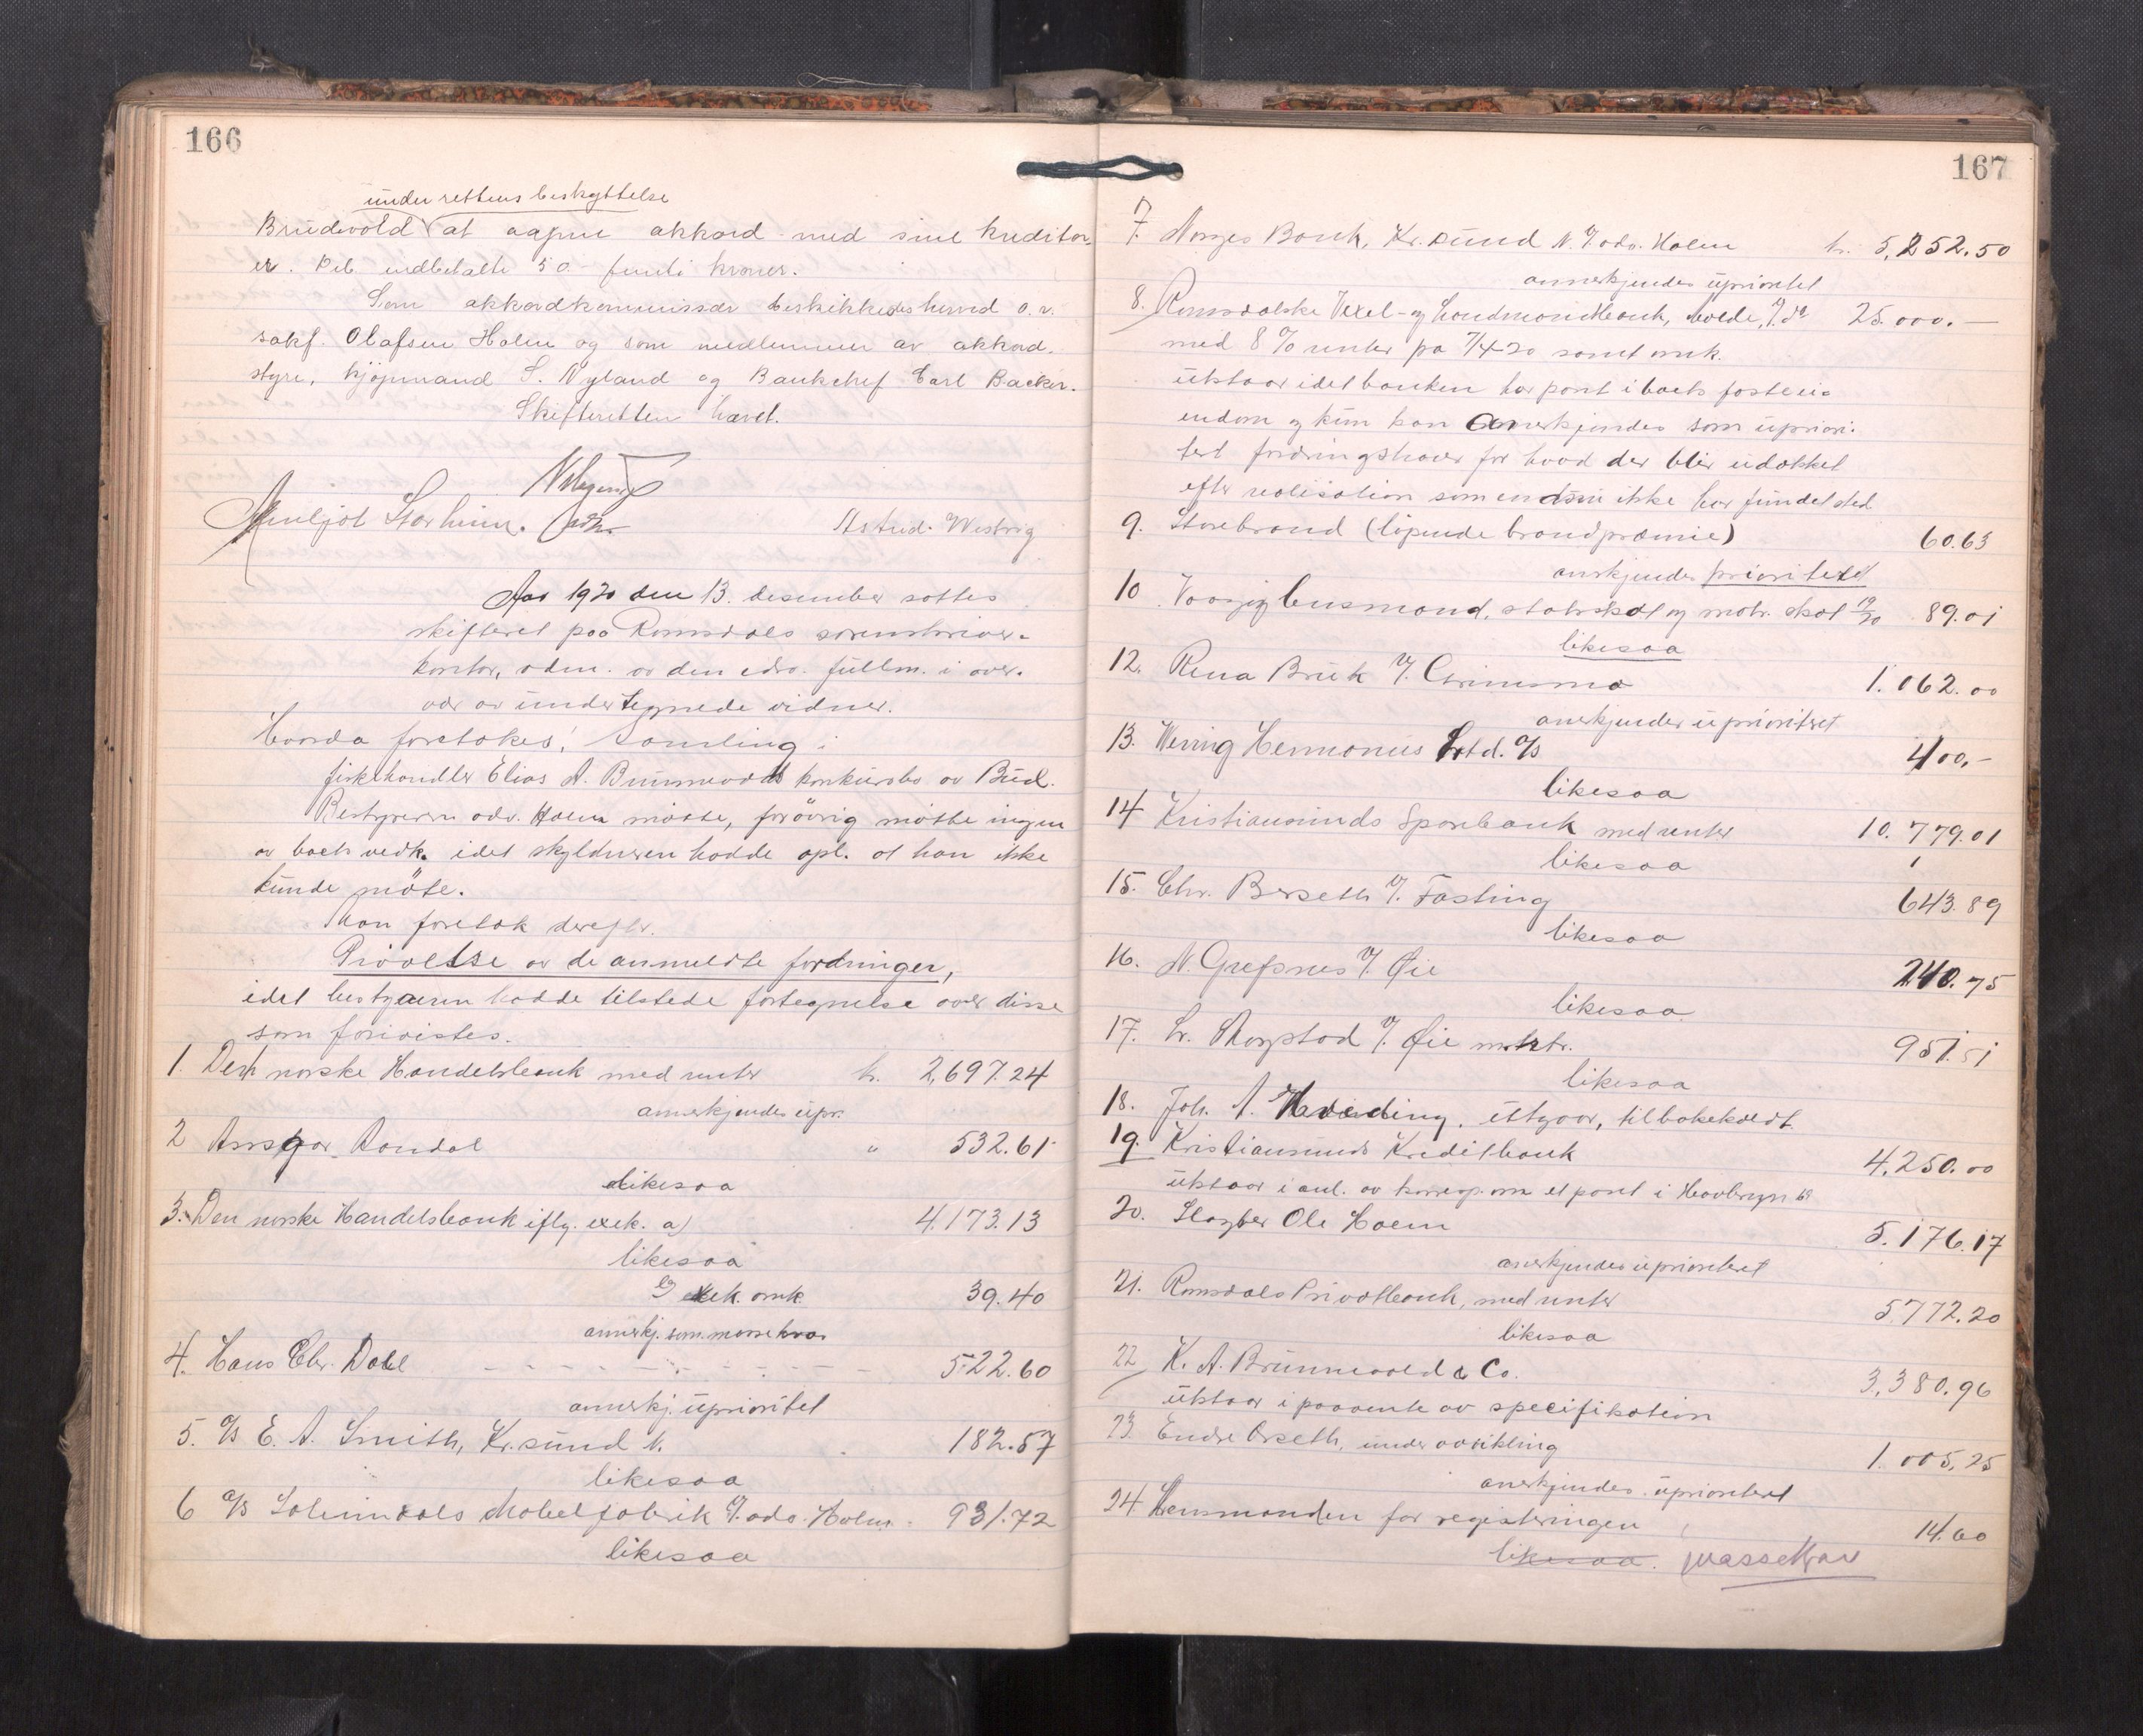 166
under rettens beskyttelse
Brudevold at aapne akkord med sine kreditor-
er. Deb. indbetalte 50 - femti kroner.
Som akkordkommissær beskikkedes herved o.r.
sakf. Olafsen Holm og som medlemmer av akkord-
styre, kjøpmand S. Nyland og Bankchef Carl Backer.
Skifteretten hævet.
Astrid Westvig
Aar 1920 den 13. desember sattes
skifteret paa Romsdals sorenskriver-
kontor, adm. av den edsv. fullm. i over-
vær av undertegnede vidner.
Hvorda foretokes: Samling i
fiskehandler Elias A. Brunsvolds konkursbo av Bud.
Bestyreren adv. Holm møtte, forøvrig møtte ingen
av boets vedk. idet skyldneren hadde opl. at han ikke
kunde møte.
Man foretok derefter.
Prøvelse av de anmeldte fordringer,
idet bestyreren hadde tilstede fortegnelse over disse
som forevistes.
1. Den norske Handelsbank med renter kr. 2,697.24
anerkjendes upr.
2 Ansgar Randal " 532.61
likesaa
3. Den norske Handelsbank iflg. exek. a) 4.173.13
likesaa
b) exek. omk. 39.40
anerkj. som massekrav
4. Hans Chr. Dahl 522.60
anerkj. uprioritet
5. A/S E. A. Smith, Kr.sund N. 182.57
likesaa
6 A/S Solemdals Møbelfabrik v. adv. Holm 931.72
likesaa
167
7. Norges Bank, Kr.sund N. v. adv. Holm kr. 5,252.50
anerkjendes uprioritet
8. Romsdalske Vexel- og Landmandsbank, Molde, v. do 25.000.-
med 8 % renter fra 7/4-20 samt omk.
utstaar idet banken har pant i boets fastei-
endom og kun kan anerkjendes som upriori-
tert fordringshaver for hvad der blir udækket
efter realisation som endnu ikke har fundet sted
9. Storebrand (løpende brandpræmie) 60.63
anerkjendes prioritert
10 Vaagøy lensmand, statsskat og matr. skat 19/20 89.01
likesaa
12. Rena Bruk v. Grimsmo 1.062.00
anerkjendes uprioritert
13. Wering Hermanus Ltd. A/S 400,-
likesaa
14 Kristiansunds Sparebank med renter 10.779.01
likesaa
15. Chr. Berseth v. Fasting 643.89
likesaa
16. N. Grefsnes v. Øie 240.75
likesaa
17. L. Rogstad v. Øie 951.51
likesaa
18. Joh. A. utgaar, tilbakekaldt.
19. Kristiansunds Kreditbank 4,250.00
utstaar i anl. av korresp. om et pant i
20. Slagter Ole Holm 5.176.17
anerkjendes uprioritert
21. Romsdals Privatbank, med renter 5772.20
likesaa
22 K. A. Brunsvold & Co. 3,380.96
utstaar i paavente av specifikation
23 Endre Orseth, under avvikling 1.005,25
anerkjendes uprioritert
24 Lensmanden for registeringen 14.60
likesaa. massekrav